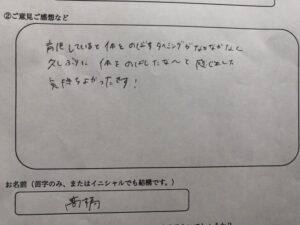 ②ご意見ご感想など
育児していると体をのばすタイミングがなかなかなく
久しぶりに 体をのばしたな〜と感じました
気持ちよかったです！
お名前（苗字のみ、またはイニシャルでも結構です。）
高橋